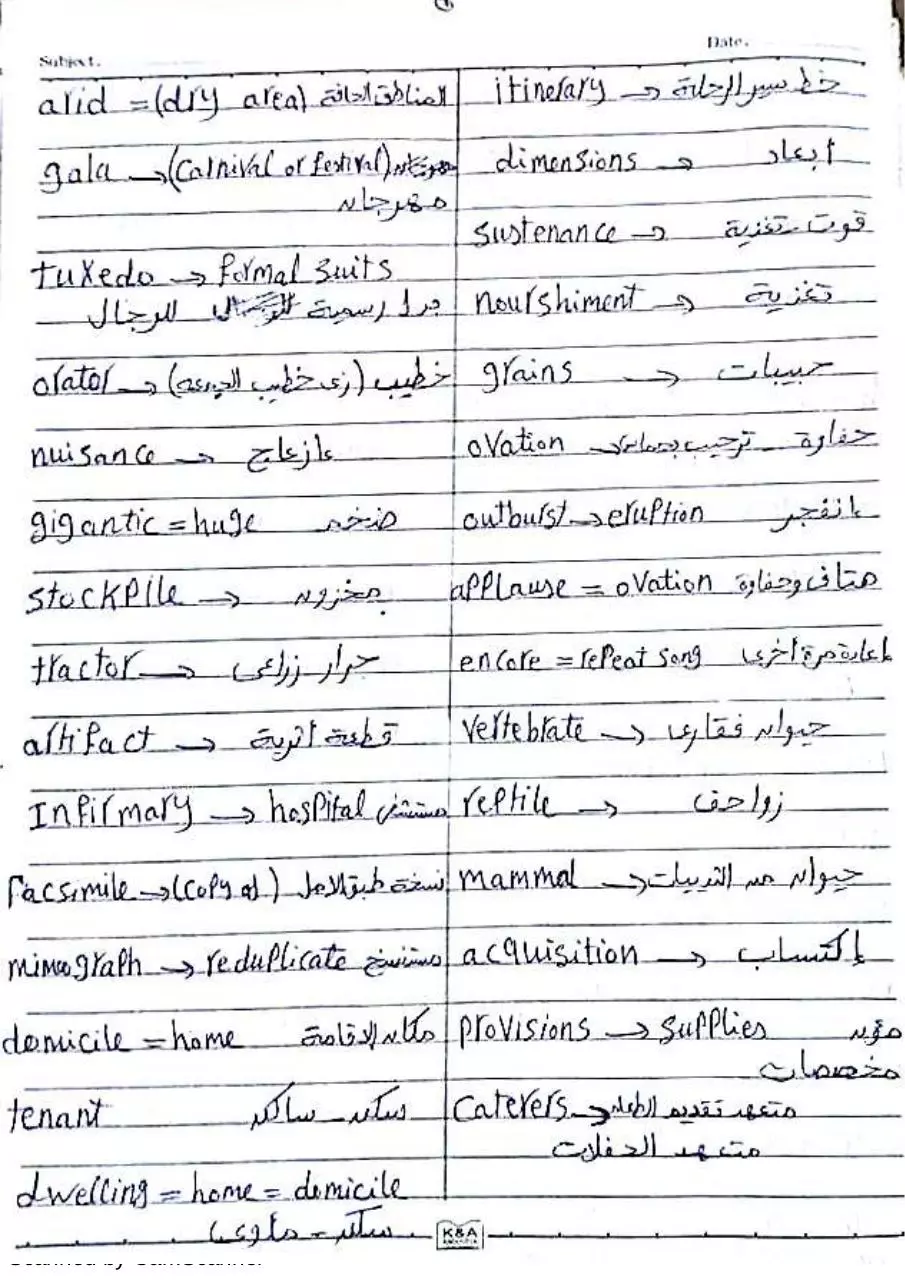 Subject.
Date.
arid = (dry area) المناطق الجافة
gala → (Carnival or festival) مهرجان
مهرجان
tuxedo → formal suits
للرجال
orator → (زى خطيب الجمعة) خطيب
nuisance → إزعاج
gigantic = huge ضخم
stockpile → مخزون
tractor → جرار زراعى
artifact → قطعة اثرية
Infirmary → hospital مستشفى
facsimile → (copy of) نسخة طبق الاصل
mimeograph → reduplicate مستنسخ
domicile = home مكان الاقامة
tenant سكن ساكن
dwelling = home = domicile
سكن - مأوى
itinerary → خط سير الرحلة
dimensions → ابعاد
sustenance → قوت تغذية
nourshiment → تغذية
grains → حبيبات
ovation → حفاوة ترحيب
outburst → eruption إنفجر
applause = ovation هتاف وحفاوة
encore = repeat song إعادة مرة أخرى
vertebrate → حيوان فقارى
reptile → زواحف
mammal → حيوان من الثدييات
acquisition → إكتساب
provisions → supplies مؤن
مخصصات
caterers → متعهد تقديم الطعام
متعهد الحفلات
K&A